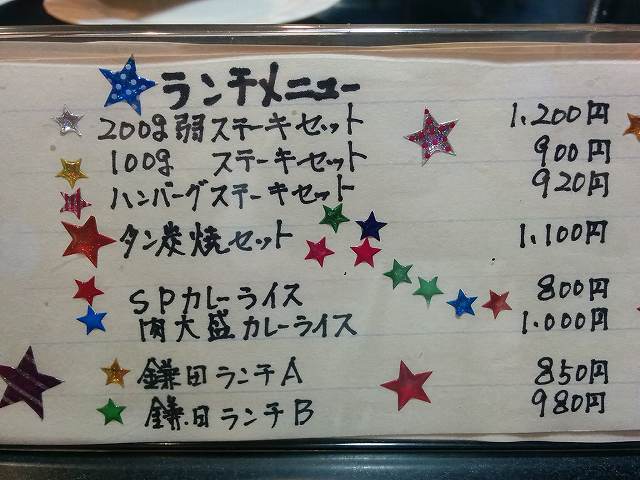 ランチメニュー
200g弱ステーキセット 1.200円
100g ステーキセット 900円
ハンバーグステーキセット 920円
タン炭焼セット 1.100円
SPカレーライス 800円
肉大盛カレーライス 1.000円
鎌田ランチA 850円
鎌田ランチB 980円